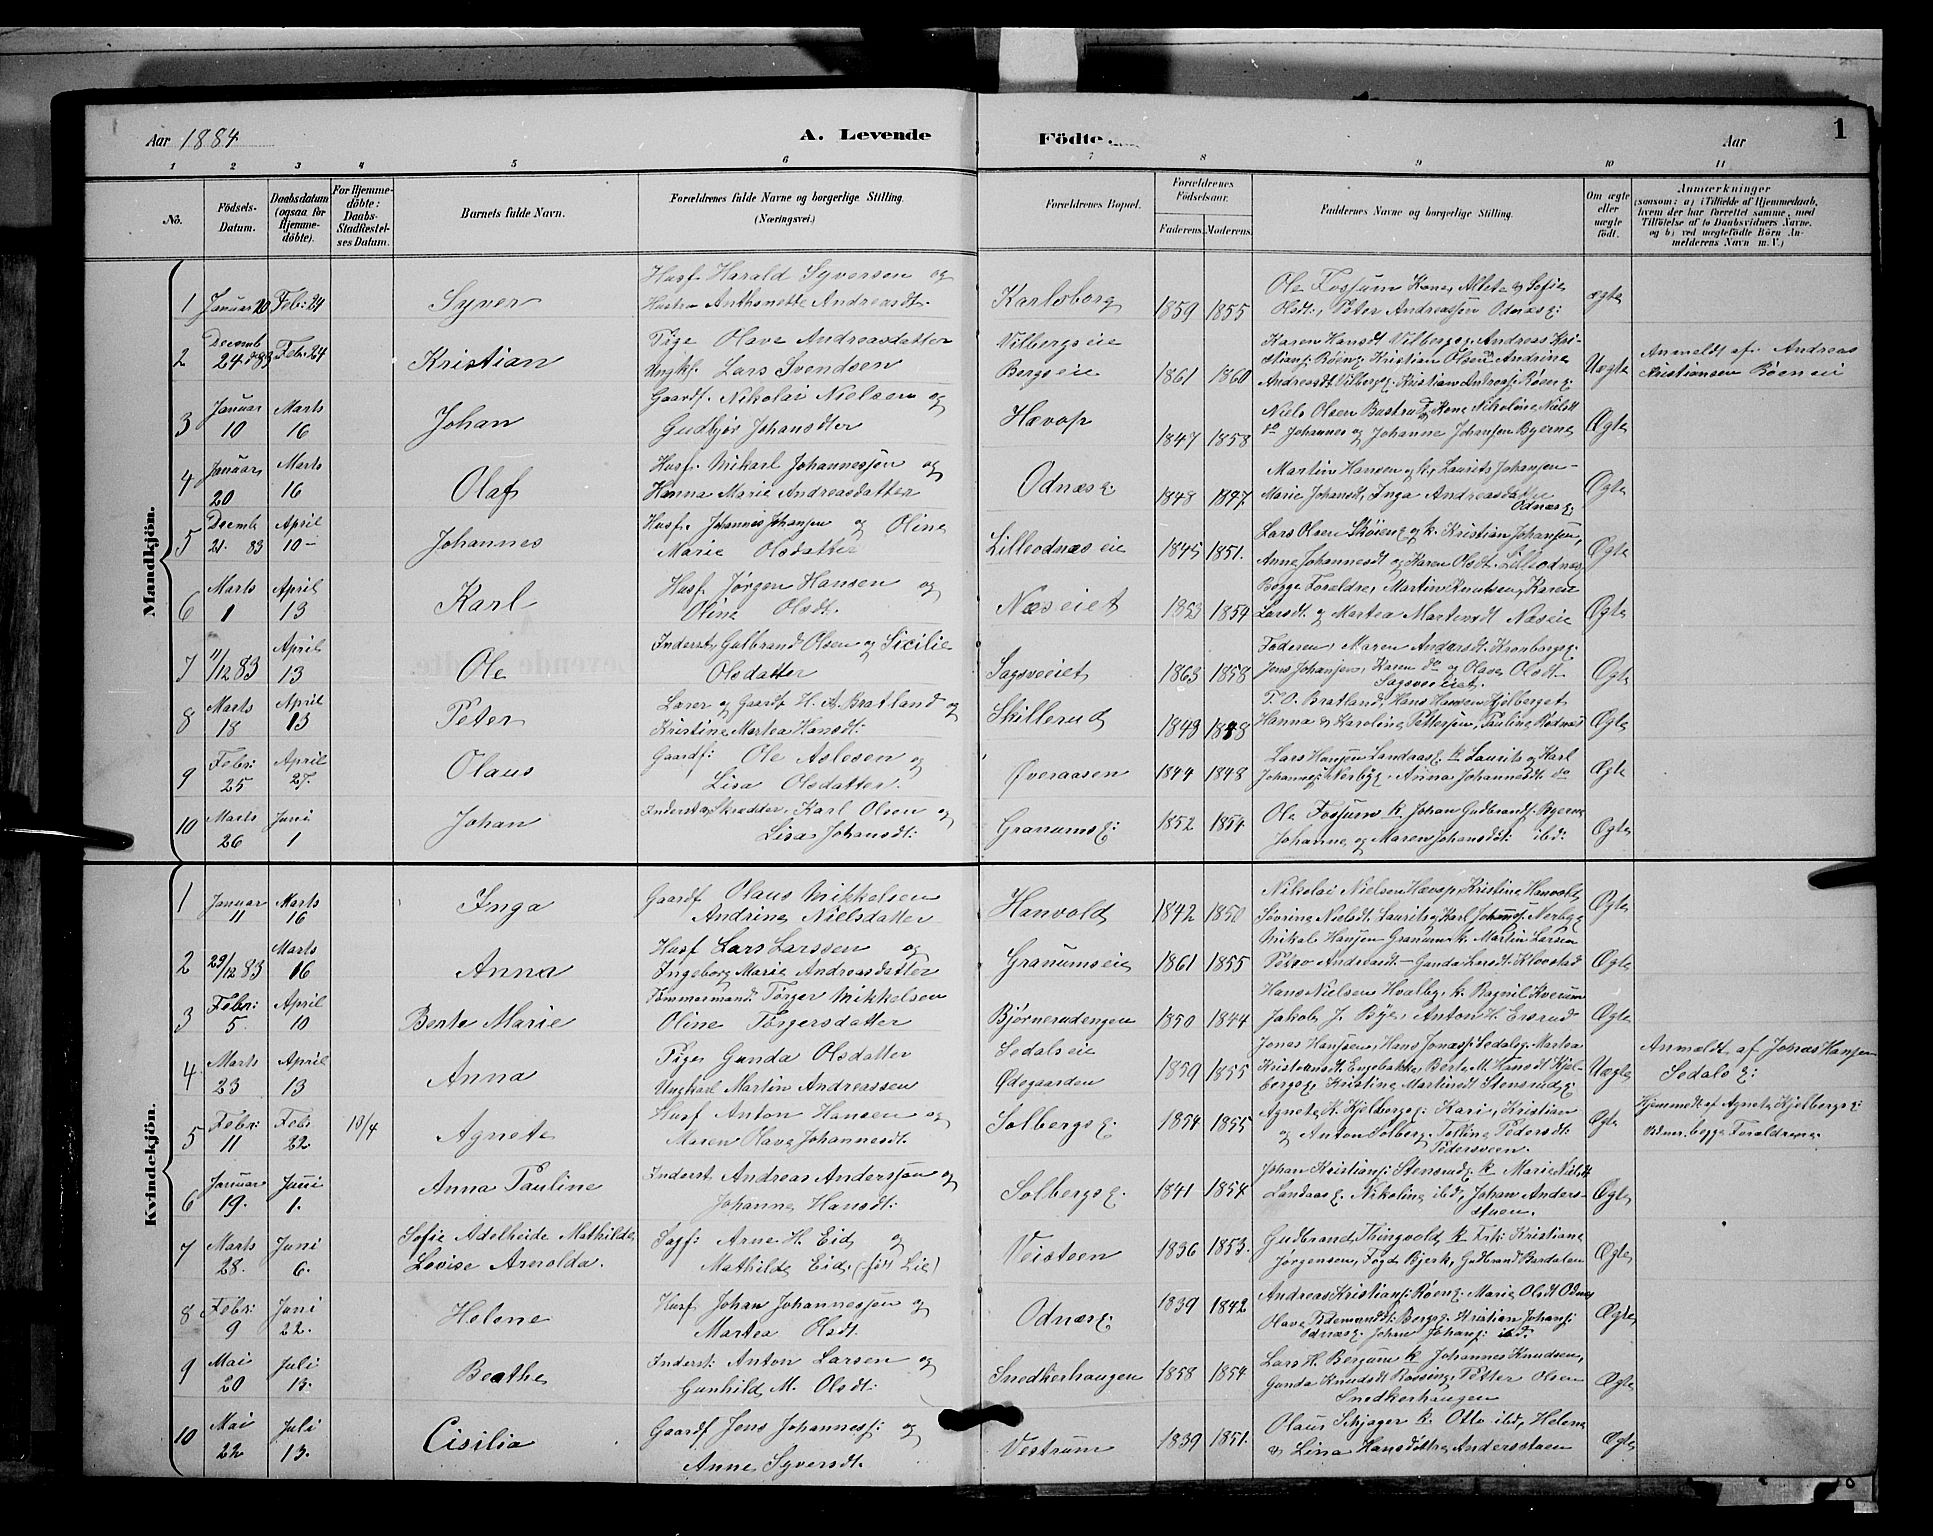 Aar 1884. A. Levende Födte. Aar 1
1 2 3 4 5 6 7 8 9 10 11
No. Födsels-Datum. Daabsdatum (ogsaa for Hjemme-döbte). For Hjemme-döbte: Daabs-Stadfæstel-ses Datum. Barnets fulde Navn. Forældrenes fulde Navne og borgerlige Stilling. (Næringsvei.) Forældrenes Bopæl. Forældrenes Födselsaar. Faderens. Moderens. Faddernes Navne og borgerlige Stilling. Om ægte eller uægte født. Anmærkninger (saasom: a) i Tilfælde af Hjemmedaab, hvem der har forrettet samme, med Tilföielse af to Daabsvidners Navne, og b) ved uægtefödte Börn An-melderens Navn m. V.)
Mandkjön.
Husf. Harald Syversen og
1 Januar 20 Feb: 24 Syver Hustru Anthonette Andreasdt. Karlsborg 1859 1855 Ole Fossum Kone, Allete & Sofie
Olsdt., Peter Andreassøn Odnæsg: ægte
2 Decemb 24 de 83 Feb: 24 Kristian Pige Olave Andreasdatter
Ungk. Lars Svendsen Vilbergseie
Bergseie 1861 1860 Karen Hansdt Vilbergsg. Andreas Kri-
stians. Røeng. Kristian Olsen Andrine
Andreasdt Vilbergsg. Kristian Andreas. Røeng: Uægte Anmeldt af Andreas
Kristiansen Röeneie
3 Januar 10 Marts 16 Johan Gaardf. Nikolai Nielsen og
Gudbjør Johansdter Hævop 1847 1858 Niels Olsen Bustrud, Kone Nikoline Nielsdt
do Johannes og Johanne Johansen Byerne Ægte
4 Januar 20 Marts 16 Olaf Husf. Mikael Johannessøn og
Hanna Marie Andreasdatter Odnæsg: 1848 1847. Martin Hansen og k., Laurits Johansen -
Marie Johansdt, Inga Andreasdatter
Odnæsg: Ægte
5 Decemb 21. 83 April 10 - Johannes Husf. Johannes Johansen og Oline
Marie Olsdatter Lilleodnæseie 1845 1851. Lars Olsen Skøieng og k. Kristian Johansøn,
Anne Johannesdt og Karen Olsdt. Lilleodnæs Ægte
6 Marts 1 April 13 Karl Husf Jørgen Hansen og
Oline Olsdt. Næseiet 1853 1859 Begge Foraldre, Martin Knutsen, Karen
Larsdt. og Martea Martinsdt Næseie Ægte
7 11/12 83 April 13 Ole Inderst, Gulbrand Olsen og Sicilie
Olsdatter Sagsveeiet 1863 1858 Faderen, Maren Andersdt. Kronborgsg.
Jens Johansen, Karen do og Olava Olsdt
Sagsveeiet. Ægte
8 Marts 18 April 13 Peter Lærer og Gaardf H. A. Bratland og
Kristine Martea Hansdt: Skillerud 1843 1848 T. O. Bratland, Hans Hansen Kjølberget
Hanna & Karoline Pettersen, Pauline Rødnæs Ægte
9 Febr: 25 April 27. Olaus Gaardf: Ole Aslesen og
Lisa Olsdatter. Øveraasen 1844 1848 Lars Hansen Landaasg. k Laurits og Karl
Johannes. Nerbyg. Anna Johannesdt do Ægte
10 Marts 26 Juni 1 Johan Inderst & Skrædder, Karl Olsen og
Lisa Johansdt: Granumsg: 1852 1854 Ole Fossum k. Johan Gudbrands. Byerne
Johanne og Maren Johansdt: ibd: Ægte
Kvindekjön.
1 Januar 11 Marts 16 Inga Gaardf Olaus Mikkelsen
Andrine Nielsdatter Hanvold 1842 1850 Nikolai Nielsen Hævop, Kristine Hanvold
Søvrine Nielsdt. Laurits & Karl Johans. Nerbyg Ægte
2 29/12 83 Marts 16 Anna Husf Lars Larssen og
Ingeborg Marie Andreasdatter Granumseie 1861 1855 Mikal Hansen Granum k. Martin Larsen
Andersdt - Gunda Larsdt. Klevstad Ægte
3 Febr: 5. April 10 Berte Marie Tömmermand Törger Mikkelsen
Oline Törgersdatter Bjørnerudengen 1850 1844 Hans Nielsen Hvalby, k. Ragnil Kverum
Jakob J. Bye, Anton H. Ersrud Ægte
4 Marts 23 April 13 Anna Pige Gunda Olsdatter
Ungkarl Martin Andreassen Sedalseie
Ødegaarden 1859 1855 Jonas Hansen, Hans Jonas. Sedalsg. Martea
Kristensdt. Engebakke, Berte M. Hansdt Kjøl-
bergsg, Kristine Martinsdt Stensrudg: Uægte Anmeldt af Johas Hansen
Sedalsg:
5 Febr: 11 Feb 22 13/4 Agnete Husf Anton Hansen og
Maren Olava Johannesdt: Solbergsg. 1854 1855 Agnete K. Kjølbergsg: Kari, Kristian
og Anton Solberg. Telline Pedersdt:
Pedersveen Ægte Hjemmedt. af Agnete Kjølbergsg:
Vidner. begge Foraldrene.
6 Januar 19. Juni 1. Anna Pauline Inderst Andreas Anderssøn og
Johanne Hansdt: Solbergsg. 1841 1854 Johan Kristians. Stensrudg. k Marie Nielsdt
Landaasg. Nikoline ibd, Johan Anders-
støen. Ægte
7 Marts 28. Juni 6. Sofie Adelheide Mathilde
Lovise Arnolda. Sagf: Arne H. Eid og
Mathilde Eid. (født Lie) Veisteen 1836 1853. Gudbrand Thingvold k Frk: Kristiane
Jørgensen, Foged Bjerk, Gudbrand Bardalen Ægte
8 Febr: 9 Juni 22. Helene Husf Johan Johannessøn og
Martea Olsdt. Odnæsg: 1839 1842 Andreas Kristians. Röeng. Marie Olsdt Odnæs
Olava Tidemandsdt: Bergsg. Kristian Johans.
Odnæsg. Johan Johans: ibd: Ægte
9 Mai 20 Juli 13. Beathe Inderst: Anton Larsen og
Gunhild M. Olsdt: Snedkerhaugen 1858 1854 Lars H. Bergum k Johannes Knudsen,
Gunda Knudsdt Røssing, Petter Olsen
Snedkerhaugen Ægte
10 Mai 22 Juli 13. Cisilia Gaardf Jens Johannes: og
Anne Syversdt. Vestrum 1839 1851. Olaus Schjager k. Otto ibd, Helene
& Lina Hansdötre Andersstøen Ægte